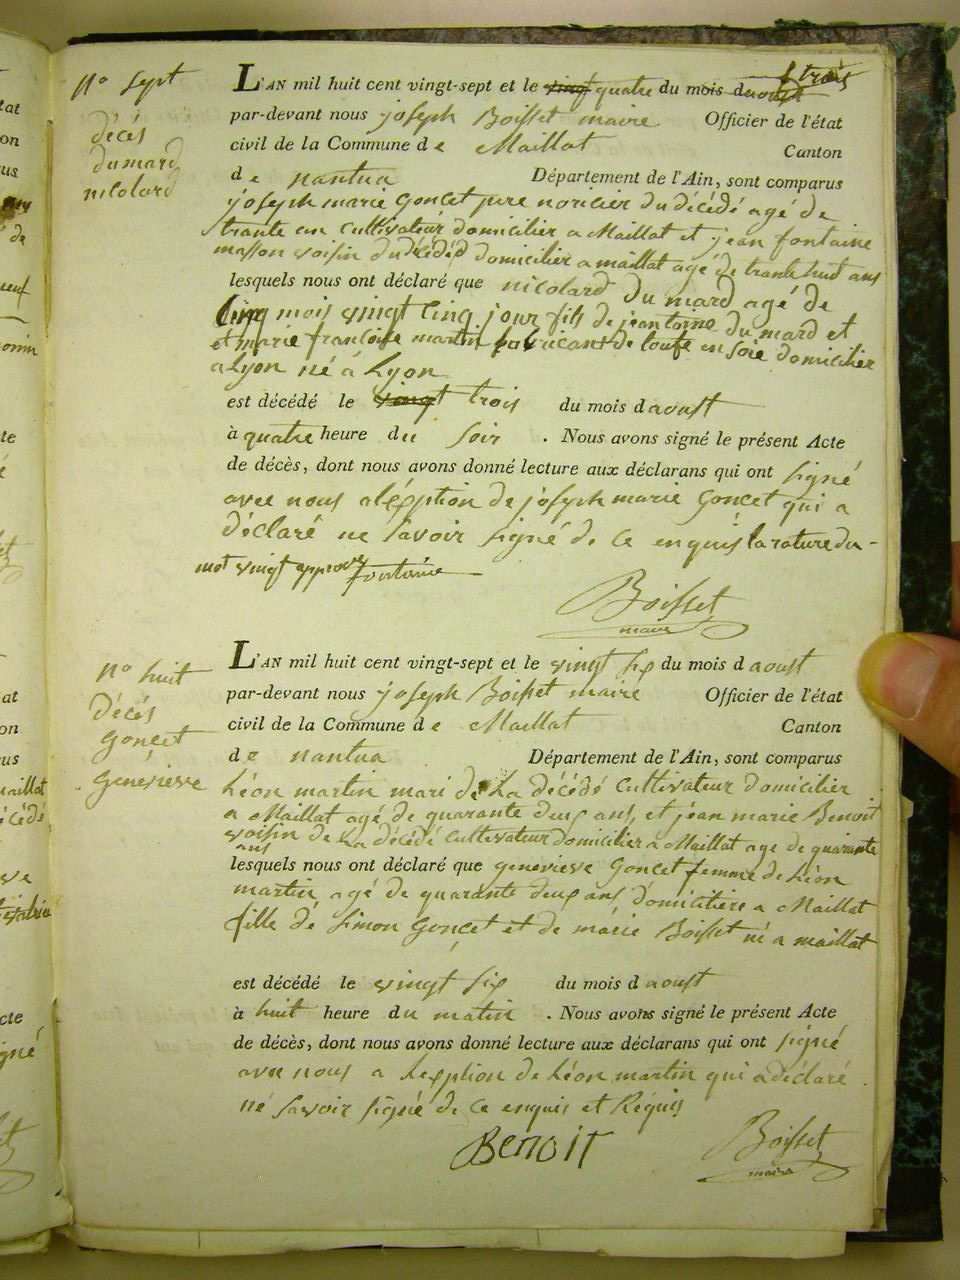 N° sept
décés
dumard
nicolard
L'AN mil huit cent vingt-sept et le vingt quatre du mois daoust
trois
par-devant nous joseph Boisset maire Officier de l'état
civil de la Commune de Maillat Canton
de nantua Département de l'Ain, sont comparus
joseph marie Goncet pere noricier du décédé agé de
trante un cultivateur domicilier a Maillat et jean fontaine
masson voisin du décédé domicilier a maillat agé de trante huit ans
lesquels nous ont déclaré que nicolard du mard agé de
Cinq mois vingt Cinq jour fils de jeantoine du mard et
et marie francoise martin fabricant de toufe en soie domicilier
a Lyon né á Lyon
est décédé le vingt trois du mois daoust
à quatre heure du soir . Nous avons signé le présent Acte
de décès, dont nous avons donné lecture aux déclarans qui ont signé
avec nous aléxption de joseph marie Goncet qui a
déclaré ne savoir signé de ce enquis la rature du -
mot vingt approuvé fontaine
Boisset
maire
N° huit
Décés
Goncet
Genevieve
L'AN mil huit cent vingt-sept et le vingt six du mois d aoust
par-devant nous joseph Boisset maire Officier de l'état
civil de la Commune de Maillat Canton
de nantua Département de l'Ain, sont comparus
Léon martin mari de La décédé Cultivateur domicilier
a Maillat agé de quarante deux ans, et jean marie Benoit
voisin de La décédé Cultivateur domicilier a Maillat age de quarante
ans
lesquels nous ont déclaré que genevieve Goncet femme de Léon
martin, agé de quarante deux ans domicilière a Maillat
fille de Simon Goncet et de marie Boisset né a maillat
est décédé le vingt six du mois d aoust
à huit heure du matin . Nous avons signé le présent Acte
de décès, dont nous avons donné lecture aux déclarans qui ont signé
avec nous a Lexption de Léon martin qui a déclaré
né savoir signé de ce enquis et Réquis
Benoit
Boisset
maire